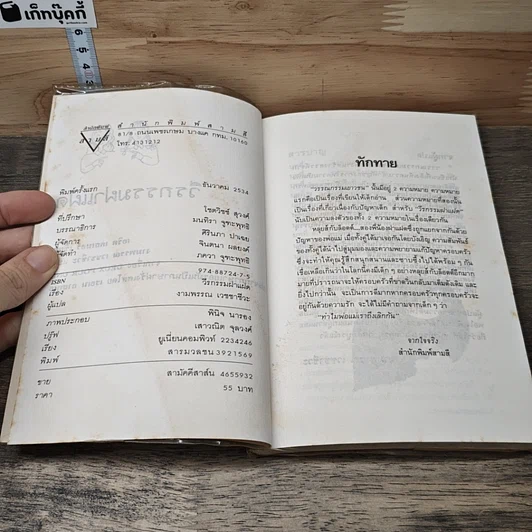 เก็ทบุ๊คกี้
6
5
4
3
สำนักพิมพ์สามสี
81/9 ถนนเพชรเกษม บางแค กทม. 10160
โทร. 4131212
พิมพ์ครั้งแรก ธันวาคม 2534
ที่ปรึกษา โชตวิชช์ สุวงศ์
บรรณาธิการ มนทิรา จูฑะพุทธิ
ผู้จัดการ ศิรินภา ปาเฉย
จินตนา ผลยงค์
ภควา จูฑะพุทธิ
ISBN 974-88724-7-5
เรื่อง วีรกรรมฝาแฝด
ผู้แปล งามพรรณ เวชชาชีวะ
ภาพประกอบ พินิจ นารอง
ปรู๊ฟ เสาวณิต จุลวงศ์
เรียง ยูเนี่ยนคอมพิวท์ 2234246
พิมพ์ สารมวลชน 3921569
ขาย สามัคคีสาส์น 4655932
ราคา 55 บาท
ทักทาย
"วรรณกรรมเยาวชน" นั้นมีอยู่ 2 ความหมาย ความหมาย
แรกคือเป็นเรื่องที่เขียนให้เด็กอ่าน ส่วนความหมายที่สองนั้น
เป็นเรื่องที่เกี่ยวเนื่องกับปัญหาเด็ก สำหรับ "วีรกรรมฝาแฝด"
นับเป็นความลงตัวของทั้ง 2 ความหมายในเรื่องเดียวกัน
หลุยส์กับล็อตต์...สองพี่น้องฝาแฝดซึ่งถูกแยกจากกันด้วย
ปัญหาของพ่อแม่ เมื่อทั้งคู่ได้มาเจอกันโดยบังเอิญ ความสัมพันธ์
ของทั้งคู่ได้นำไปสู่มุมมองและความพยายามแก้ปัญหาครอบครัว
ซึ่งจะทำให้คุณรู้สึกสนุกสนานและซาบซึ้งไปได้พร้อม ๆ กัน
เชื่อเหลือเกินว่าในโลกนี้คงมีเด็ก ๆ อย่างหลุยส์กับล็อตต์อีกมาก
มายที่ปรารถนาจะให้ครอบครัวที่ขาดวิ่นกลับมาเติมเต็มเดิม และ
ยิ่งไปกว่านั้น จะเป็นการดีมากหากครอบครัวทุกครอบครัวจะ
อยู่กันด้วยความรัก จะได้ไม่มีคำถามจากเด็ก ๆ ว่า
"ทำไมพ่อแม่เราถึงเลิกกัน"
จากใจจริง
สำนักพิมพ์สามสี